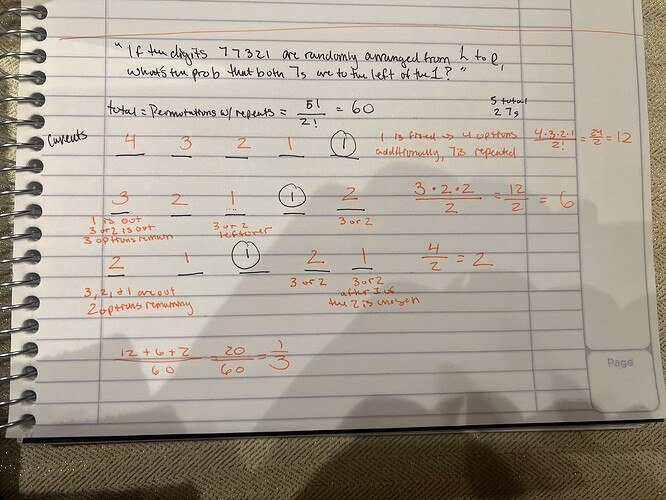 "If the digits 77321 are randomly arranged from L to R,
what's the prob that both 7s are to the left of the 1?"
total = permutations w/ repeats = 5!/2! = 60
5 total
2 7s
4 3 2 1 1
1 is fixed → 4 options
additionally, 7 is repeated
4·3·2·1/2! = 24/2 = 12
3 2 1 1 2
3·2·2/2 = 12/2 = 6
1 is out
3 or 2 is out
3 options remain
3 or 2
leftover
3 or 2
2 1 1 2 1
4/2 = 2
3, 2, + 1 are out
2 options remaining
3 or 2
3 or 2
after 1 of
the 2 is chosen
12 + 6 + 2/60 = 20/60 = 1/3
Page